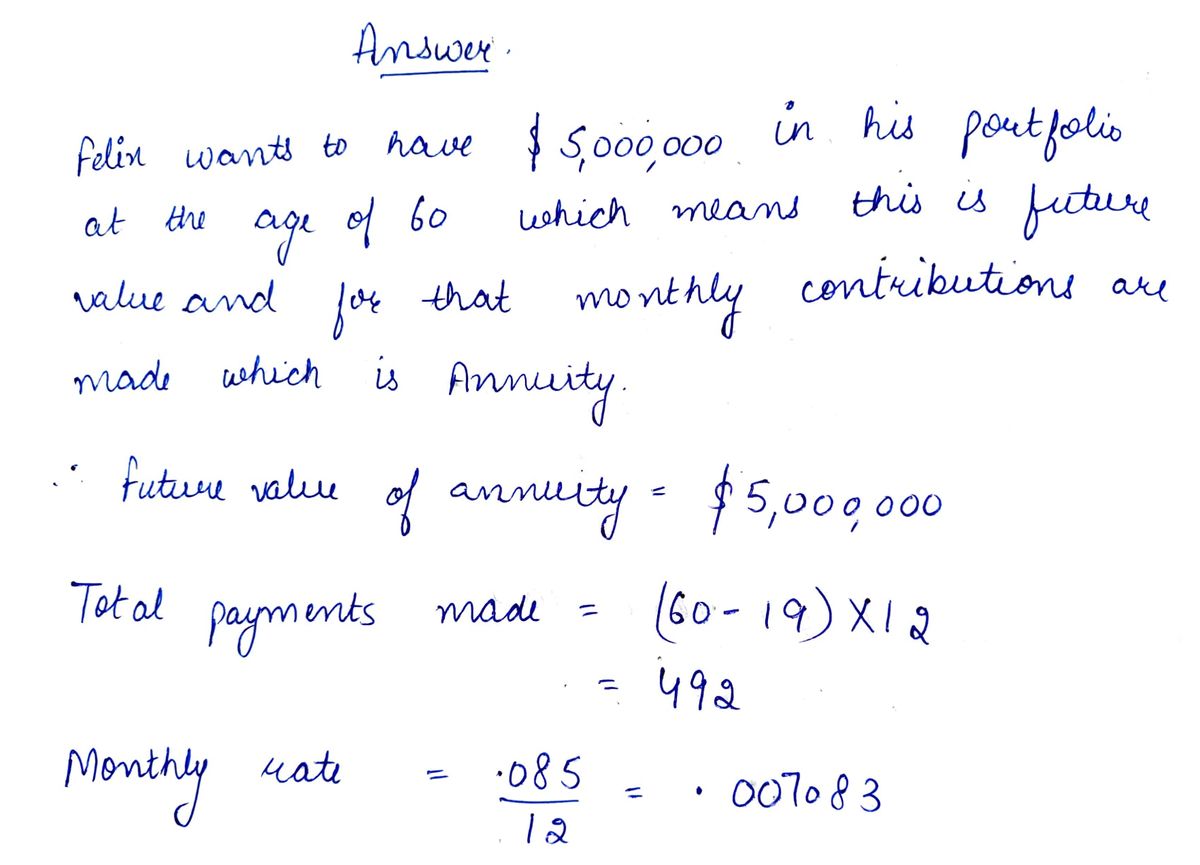 Answer.
Felix wants to have $5,000,000 in his portfolio
at the age of 60 which means this is future
value and for that monthly contributions are
made which is Annuity.
∴ Future value of annuity = $5,000,000
Total payments made = (60-19) X12
= 492
Monthly rate = .085/12 = .007083